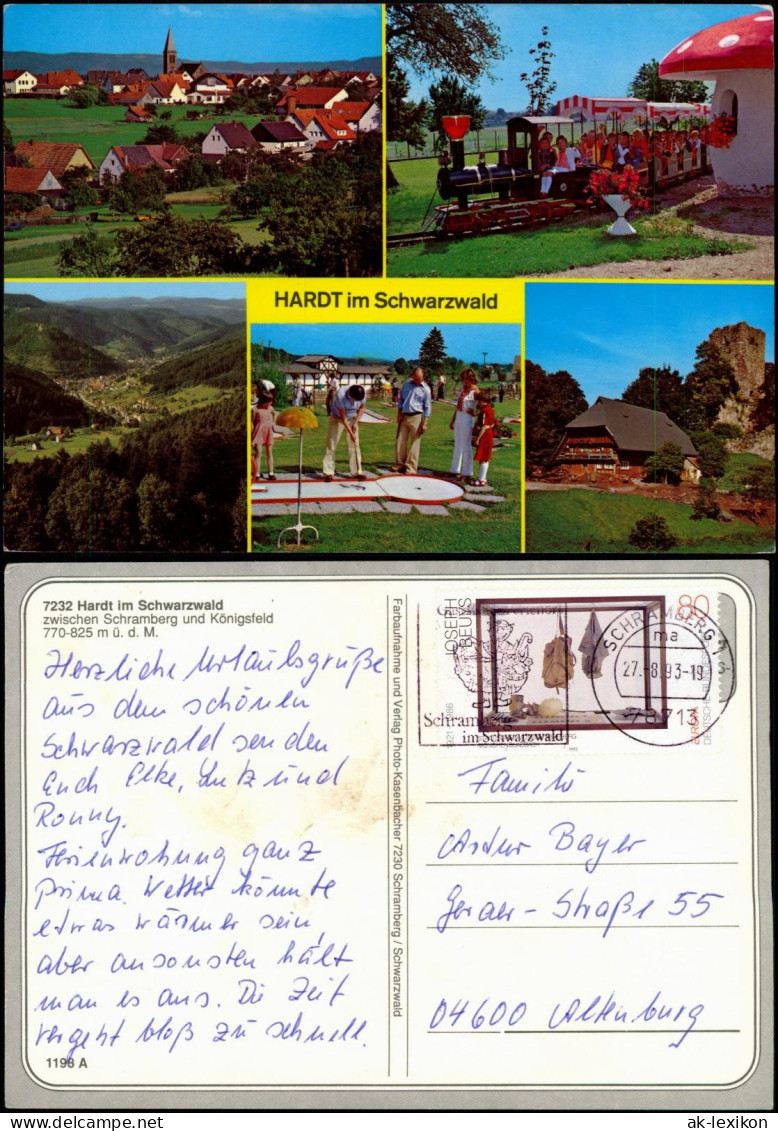 HARDT im Schwarzwald
7232 Hardt im Schwarzwald
zwischen Schramberg und Königsfeld
770-825 m ü. d. M.
Herzliche Urlaubsgrüße
aus dem schönen
Schwarzwald senden
Euch Elke, Lutz und
Ronny.
Ferienwohnung ganz
prima. Wetter könnte
etwas wärmer sein,
aber ansonsten hält
man es aus. Die Zeit
vergeht bloß zu schnell.
1198 A
Farbaufnahme und Verlag Photo-Kasenbacher 7230 Schramberg / Schwarzwald
JOSEPH
BEUYS
80
Schramberg
im Schwarzwald
SCHRAMBERG 1
ma
27.-8.93-19
78713
Familie
Artur Bayer
Geraer-Straße 55
04600 Altenburg
ak-lexikon